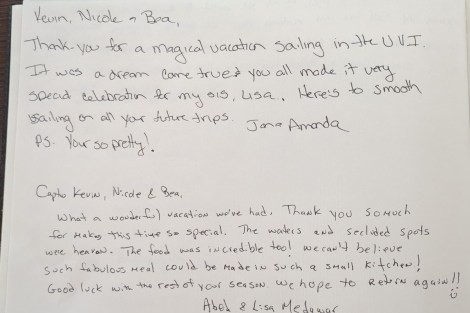 Kevin, Nicole & Bea,
Thank you for a magical vacation sailing in the UVI.
It was a dream come true & you all made it very
special celebration for my sis, Lisa. Here's to smooth
sailing on all your future trips. Amanda
PS. Your so pretty!
Capt Kevin, Nicole & Bea,
What a wonderful vacation we've had. Thank you so much
for making this time so special. The waters and secluded spots
were heaven. The food was incredible too! we can't believe
such fabulous meal could be made in such a small kitchen!
Good luck with the rest of your season. We hope to return again!!
Abel & Lisa